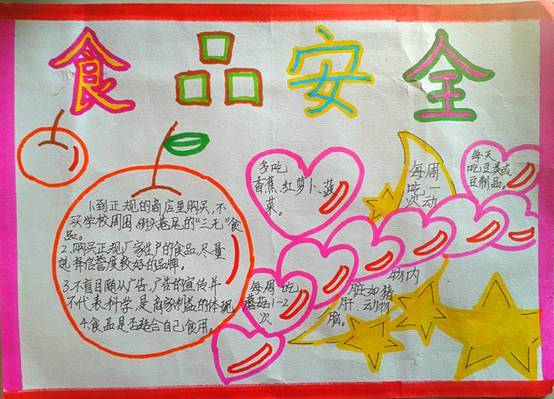 食品安全
1.到正规的商店里购买,不
买学校周围、街头巷尾的“三无”食
品。
2.购买正规厂家生产的食品,尽量
选择信誉度较好的品牌。
3.不盲目随从广告,广告的宣传并
不代表科学,是商家利益的体现
4.食品是否适合自己食用。
多吃
香蕉、红萝卜、蔬
菜。
每周
吃一
次动
物内
脏如猪
肝、动物
脑。
每天
吃豆类或
豆制品。
每周吃
蘑菇1-2
次